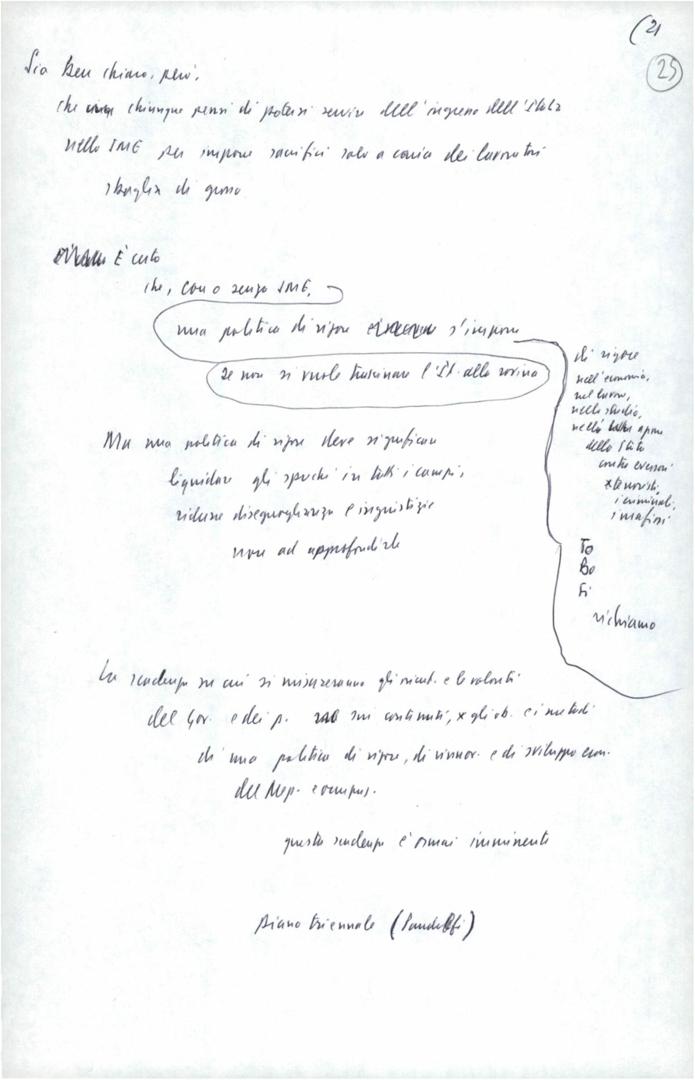 (21
25
Sia ben chiaro, però,
che chiunque pensi di potersi servire dell'ingresso dell'Italia
nello SME per imporre sacrifici solo a carico dei lavoratori
sbaglia di grosso
È certo
che, con o senza SME,
una politica di rigore s'impone
se non si vuole trascinare l'It. alla rovina
di rigore
nell'economia,
nel lavoro,
nello studio,
nella azione
dello Stato
contro eversori
x terroristi,
i criminali,
i mafiosi
Ma una politica di rigore deve significare
liquidare gli sprechi in tutti i campi,
ridurre diseguaglianze e ingiustizie
non ad approfondirle
To
Bo
Fi
richiamo
La scadenza su cui si misureranno gli orient. e le volontà
del Gov. e dei p. sui contenuti, x gli ob. e i metodi
di una politica di rigore, di rinnov. e di sviluppo econ.
del Mep.
questa scadenza è ormai imminente
piano triennale (Pandolfi)